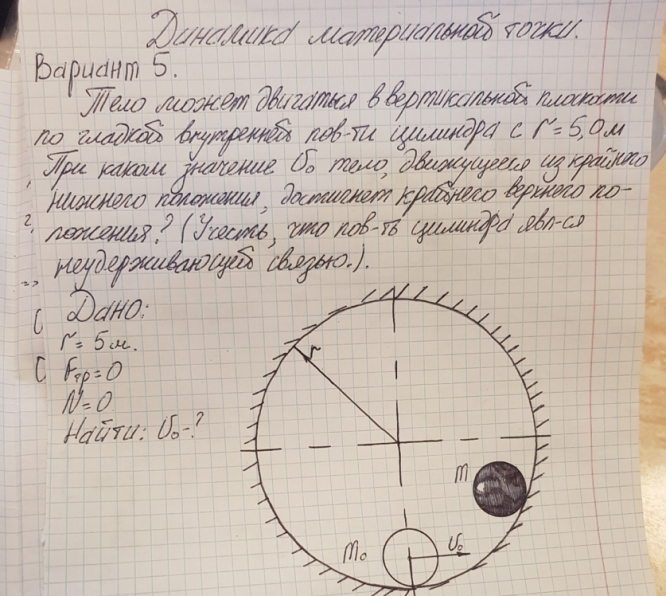 Динамика материальной точки.
Вариант 5.
Тело может двигаться в вертикальной плоскости
по гладкой внутренней пов-ти цилиндра с r=5,0м
При каком значение V₀ тело, движущееся из крайнего
нижнего положения, достигнет крайнего верхнего по-
ложения? (Учесть, что пов-ть цилиндра явл-ся
неудерживающей связью.).
Дано:
r=5м.
Fтр=0
N=0
Найти: V₀-?
r
m
m₀
V₀